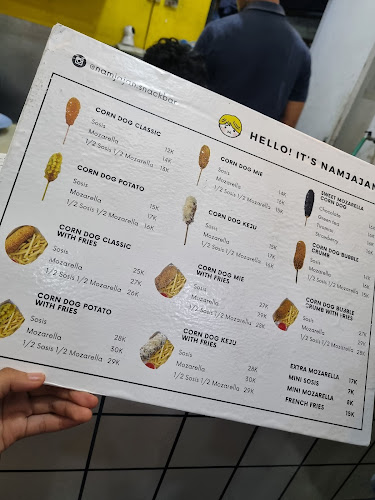 @namjajan.snackbar
HELLO! IT'S NAMJAJAN
CORN DOG CLASSIC
Sosis 12K
Mozarella 14K
1/2 Sosis 1/2 Mozarella 13K
CORN DOG POTATO
Sosis 15K
Mozarella 17K
1/2 Sosis 1/2 Mozarella 16K
CORN DOG CLASSIC
WITH FRIES
Sosis 25K
Mozarella 27K
1/2 Sosis 1/2 Mozarella 26K
CORN DOG POTATO
WITH FRIES
Sosis 28K
Mozarella 30K
1/2 Sosis 1/2 Mozarella 29K
CORN DOG MIE
Sosis 14K
Mozarella
1/2 Sosis 1/2 Mozarella
CORN DOG KEJU
Sosis 15K
Mozarella 17K
1/2 Sosis 1/2 Mozarella
CORN DOG MIE
WITH FRIES
Sosis 27K
Mozarella
1/2 Sosis 1/2 Mozarella
CORN DOG KEJU
WITH FRIES
Sosis 28K
Mozarella 30K
1/2 Sosis 1/2 Mozarella 29K
SWEET MOZARELLA
CORN DOG
Chocolate
Green tea
Tiramisu
Strawberry
CORN DOG BUBBLE
CRUMB
Sosis
Mozarella
1/2 Sosis 1/2 Mozarella
CORN DOG BUBBLE
CRUMB WITH FRIES
Sosis
Mozarella
1/2 Sosis 1/2 Mozarella
EXTRA MOZARELLA 17K
MINI SOSIS 7K
MINI MOZARELLA 8K
FRENCH FRIES 15K